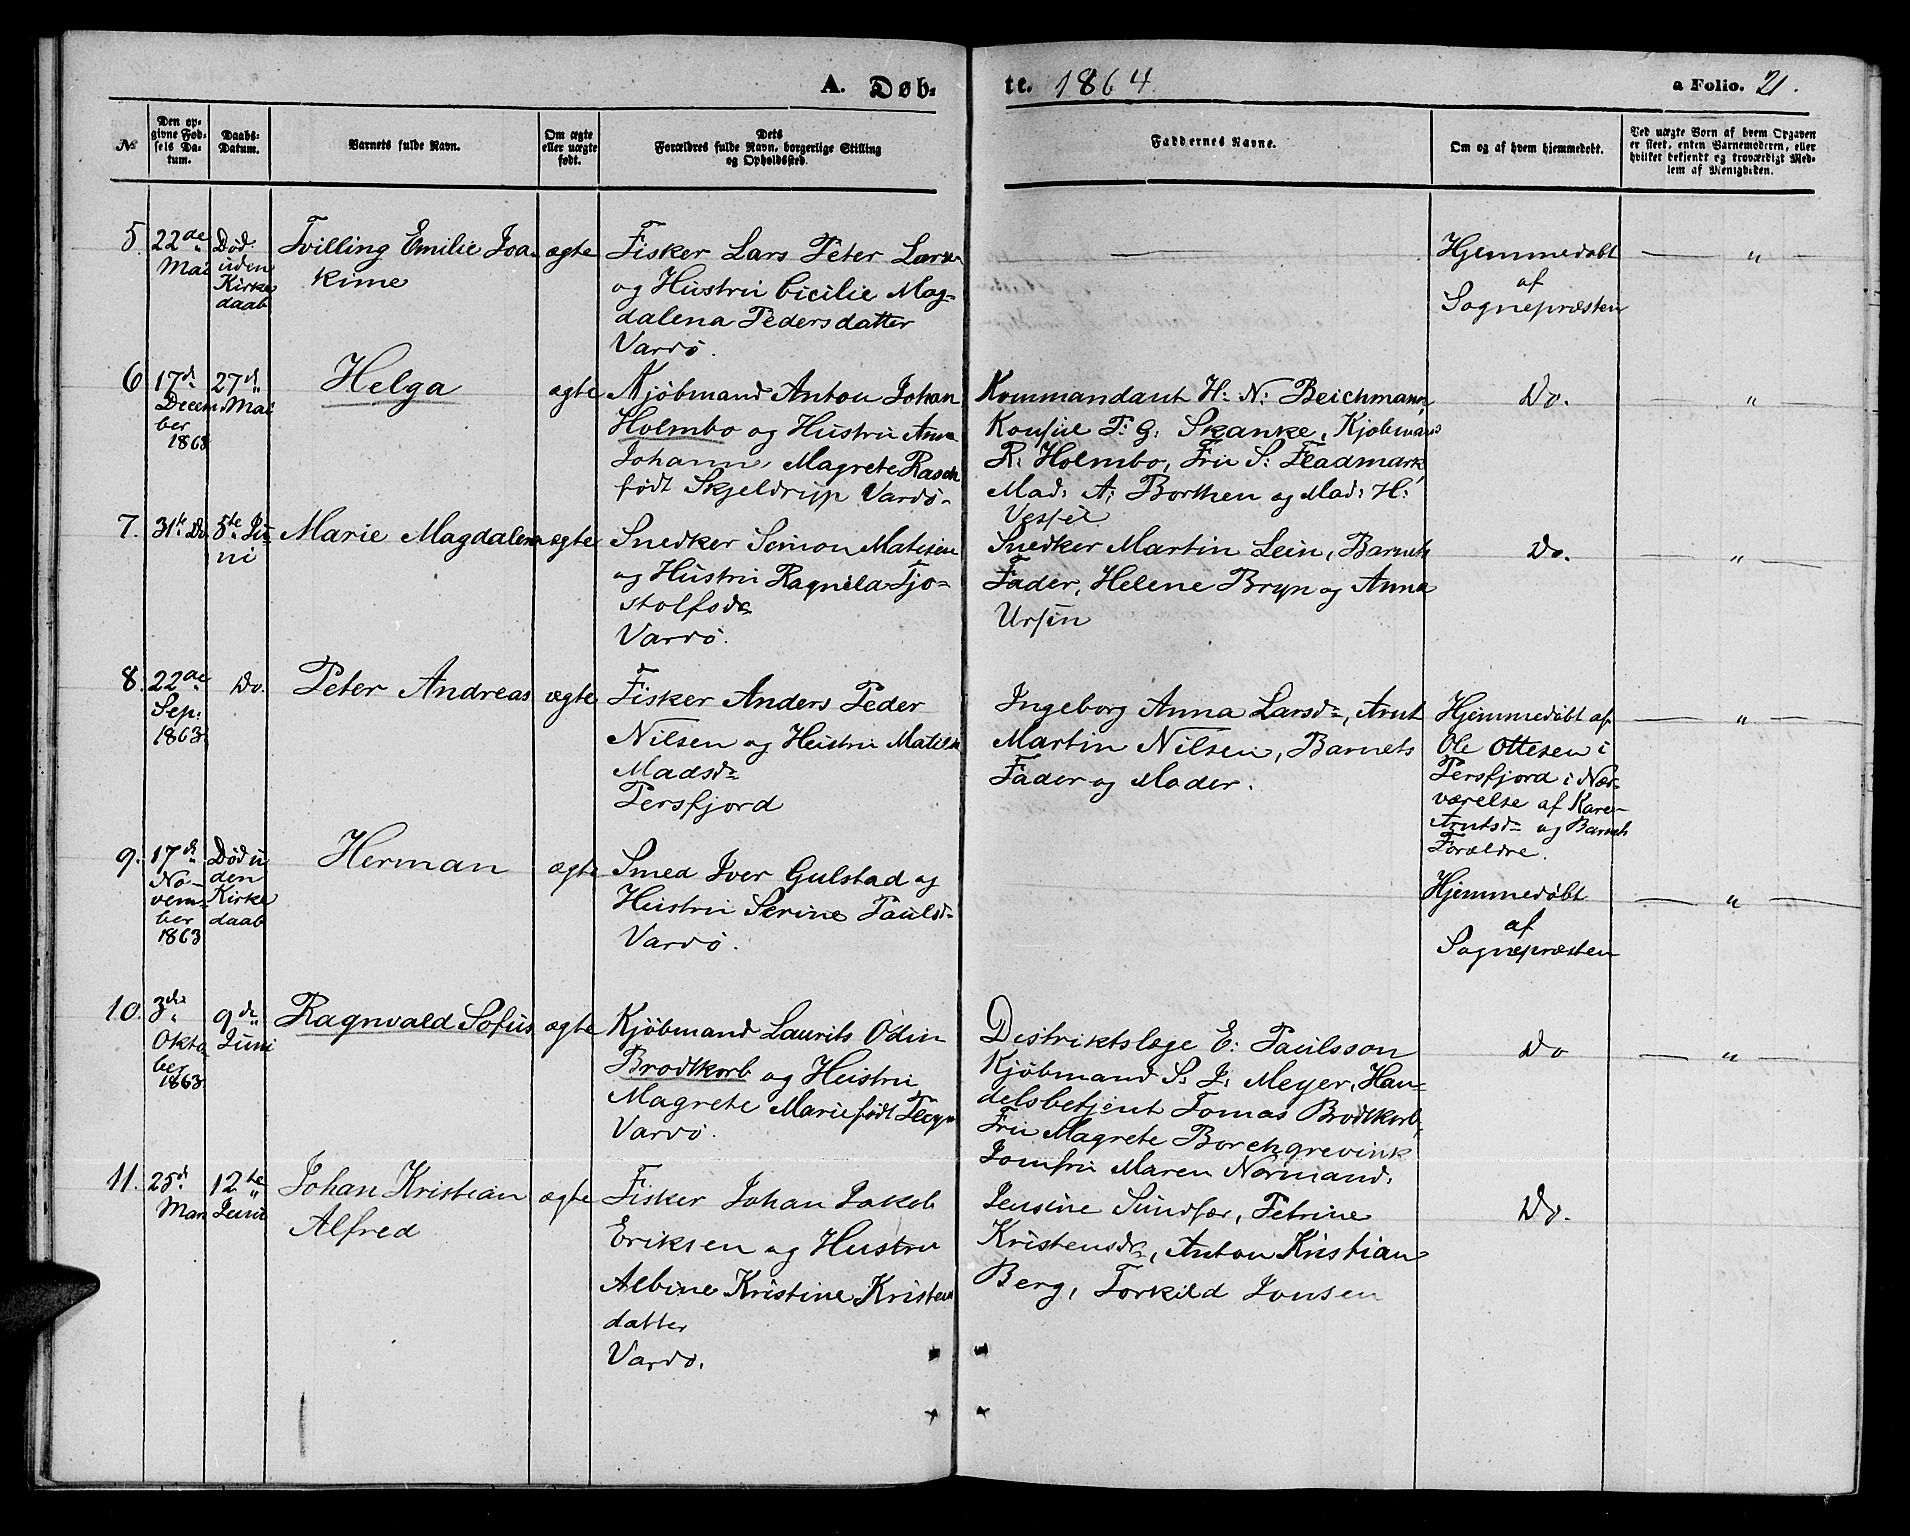 A. Døb-
te. 1864.
a Folio. 21.
№
Den op-
givne Fød-
sels Da-
tum.
Daabs-
Datum.
Barnets fulde Navn.
Om ægte
eller uægte
født.
Dets
Forældres fulde Navn, borgerlige Stilling
og Opholdssted.
Faddernes Navne.
Om og af hvem hjemmedøbt.
Ved uægte Børn af hvem Opgaven
er skeet, enten Barnemoderen, eller
hvilket bekjendt og troværdigt Med-
lem af Menigheden.
5
22de
Mai
Død
uden
Kirke
daab
Tvilling Emilie Joa-
kime
ægte
Fisker Lars Peter Larsen
og Hustru Cicilie Mag-
dalena Pedersdatter
Vardö.
Hjemmedøbt
af
Sognepræsten
"
6
17d
Decem
ber
1863
27d
Mai
Helga
ægte
Kjøbmand Anton Johan
Holmbo og Hustru Anna
Johanne Magrete Rasch
født Skjeldrup Vardö
Kommandant H: N: Beichmann,
Konsul T: G: Skanke, Kjøbmand
R: Holmbo, Fru S: Fladmark,
Mad: A: Borthen og Mad: H:
Vessel
Do.
"
7.
31te Do
5te Ju-
ni
Marie Magdalena
ægte
Snedker Simon Matisen
og Hustru Ragnila Tjo-
stolfsdr
Vardö.
Snedker Martin Lein, Barnets
Fader, Helene Bryn og Anna
Ursin
Do.
"
8.
22de
Sep:
1863
Do.
Peter Andreas
ægte
Fisker Anders Peder
Nilsen og Hustru Matilde
Madsdr
Persfjord
Ingeborg Anna Larsdr, Arnt
Martin Nilsen, Barnets
Fader og Moder.
Hjemmedøbt af
Ole Ottesen i
Persfjord i Nær-
værelse af Karen
Arntsdr og Barnets
Forældre.
"
9.
17d
No-
vem-
ber
1863
Død u
den
Kirke
daab
Herman
ægte
Smed Iver Gulstad og
Hustru Serine Paulsdr
Vardö.
Hjemmedøbt
af
Sognepræsten
"
10.
3die
Okto
ber
1863
9de
Juni
Ragnvald Sofus
ægte
Kjøbmand Laurits Odin
Brodtkorb og Hustru
Magrete Marie født
Vardö.
Distriktslæge E: Paulsson
Kjøbmand S. J. Meyer, Han-
delsbetjent Tomas Brodtkorb,
Fru Magrete Borchgrevink
Jomfru Maren Normand.
Do
"
11.
25d
Mars
12te
Juni
Johan Kristian
Alfred
ægte
Fisker Johan Jakob
Eriksen og Hustru
Albine Kristine Kristens
datter
Vardö.
Jensine Sundfær, Petrine
Kristensdr, Anton Kristian
Berg, Torkild Jonsen
Do.